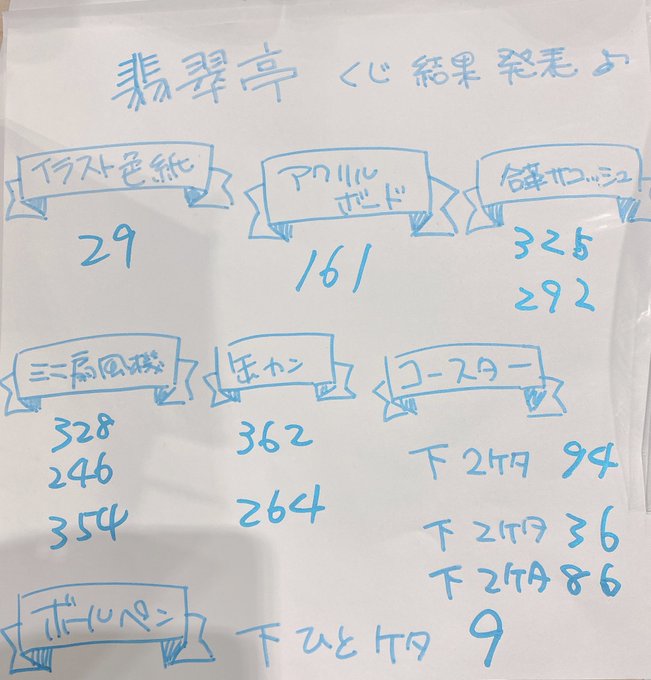 翡翠亭 くじ 結果 発表 ♪
イラスト色紙
29
アクリル
ボード
161
合革サコッシュ
325
292
ミニ扇風機
328
246
354
缶カン
362
264
コースター
下2ケタ 94
下2ケタ 36
下2ケタ 86
ボールペン
下ひとケタ 9